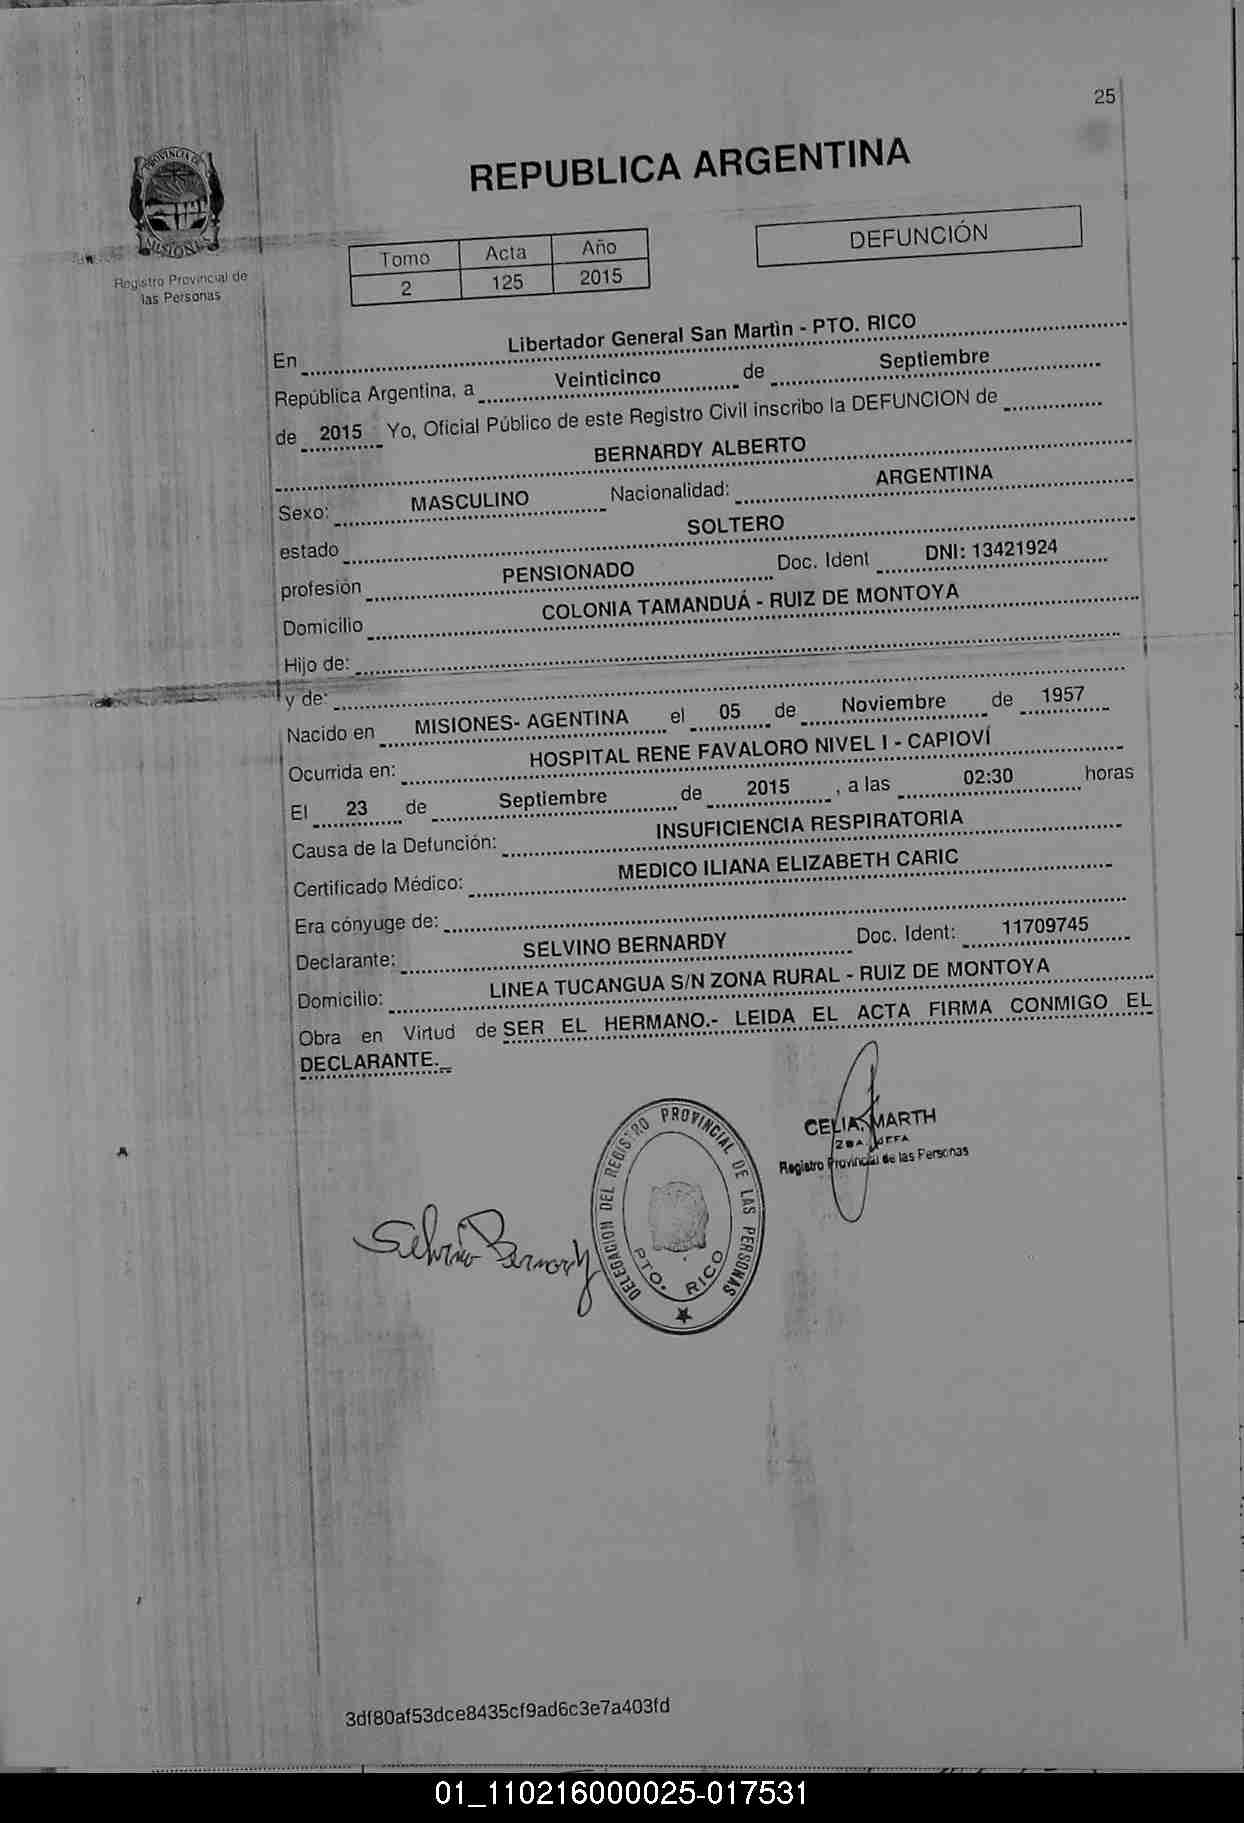 25
PROVINCIA DE
MISIONES
Registro Provincial de
las Personas
REPUBLICA ARGENTINA
Tomo Acta Año
2 125 2015
DEFUNCIÓN
En Libertador General San Martìn - PTO. RICO
República Argentina, a Veinticinco de Septiembre
de 2015 Yo, Oficial Público de este Registro Civil inscribo la DEFUNCION de
BERNARDY ALBERTO
Sexo: MASCULINO Nacionalidad: ARGENTINA
estado SOLTERO
profesión PENSIONADO Doc. Ident DNI: 13421924
Domicilio COLONIA TAMANDUÁ - RUIZ DE MONTOYA
Hijo de:
y de:
Nacido en MISIONES- AGENTINA el 05 de Noviembre de 1957
Ocurrida en: HOSPITAL RENE FAVALORO NIVEL I - CAPIOVÍ
El 23 de Septiembre de 2015 , a las 02:30 horas
Causa de la Defunción: INSUFICIENCIA RESPIRATORIA
Certificado Médico: MEDICO ILIANA ELIZABETH CARIC
Era cónyuge de:
Declarante: SELVINO BERNARDY Doc. Ident: 11709745
Domicilio: LINEA TUCANGUA S/N ZONA RURAL - RUIZ DE MONTOYA
Obra en Virtud de SER EL HERMANO.- LEIDA EL ACTA FIRMA CONMIGO EL
DECLARANTE.
CELIA MARTH
Registro Provincial de las Personas
DELEGACION DEL REGISTRO PROVINCIAL DE LAS PERSONAS
PTO. RICO
Selvino Bernardy
3df80af53dce8435cf9ad6c3e7a403fd
01_110216000025-017531